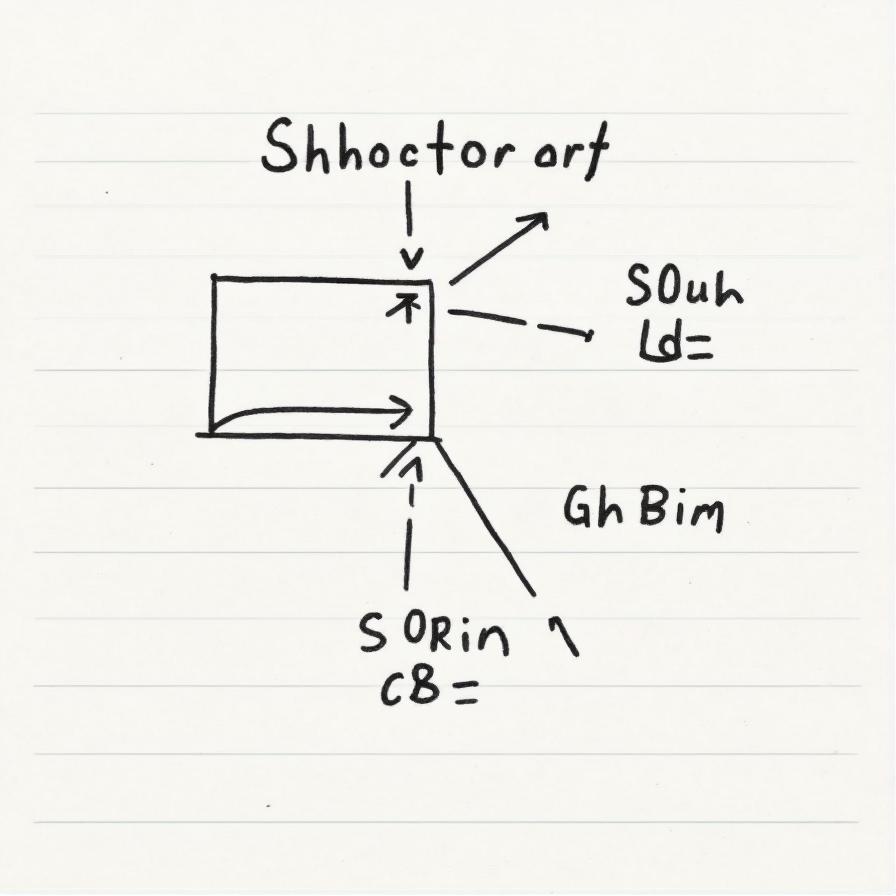 Shhoctor orf
SOuh
Ld=
Gh Bim
S ORin
CB =